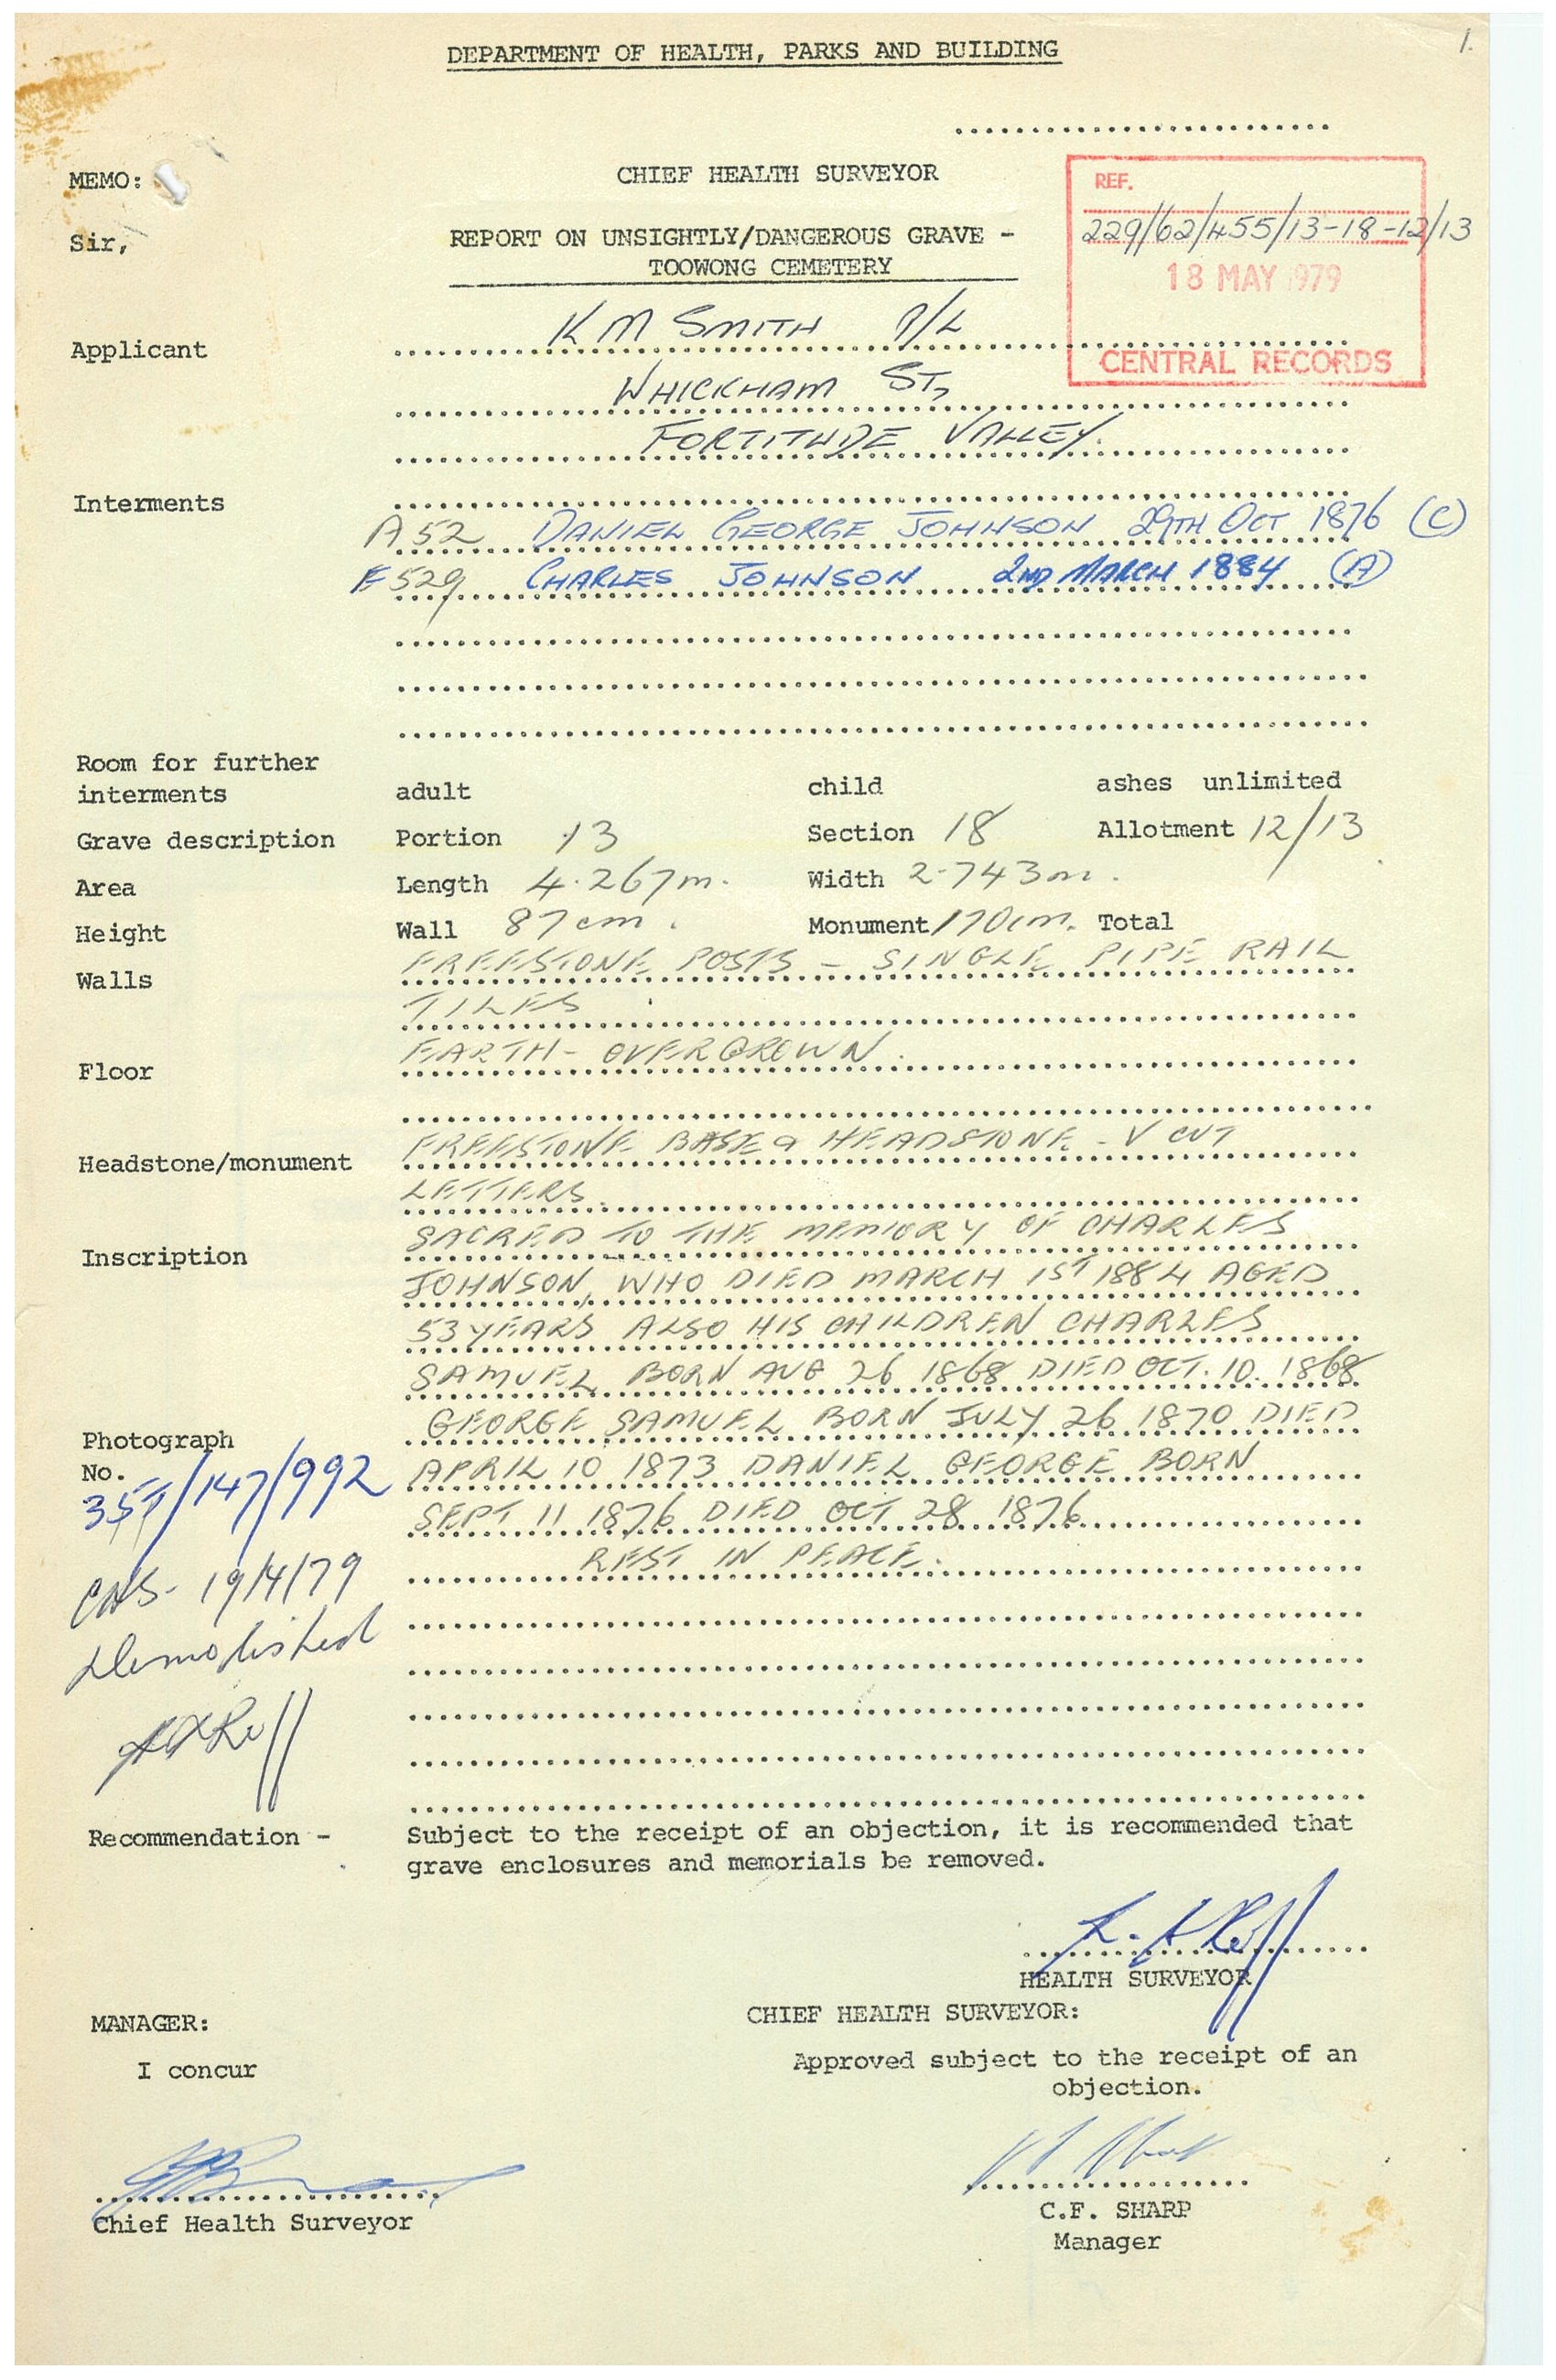 1.
DEPARTMENT OF HEALTH, PARKS AND BUILDING
MEMO:
CHIEF HEALTH SURVEYOR
REF.
Sir,
REPORT ON UNSIGHTLY/DANGEROUS GRAVE -
TOOWONG CEMETERY
229/62/455/13-18-12/13
18 MAY 1979
CENTRAL RECORDS
Applicant
K M SMITH P/L
WHICKHAM ST,
FORTITUDE VALLEY.
Interments
A52 DANIEL GEORGE JOHNSON 29TH OCT 1876 (C)
E529 CHARLES JOHNSON 2ND MARCH 1884 (A)
Room for further
interments adult child ashes unlimited
Grave description Portion 13 Section 18 Allotment 12/13
Area Length 4.267m. Width 2.743m.
Height Wall 87cm. Monument 170cm. Total
Walls FREESTONE POSTS - SINGLE PIPE RAIL
TILES
Floor EARTH - OVERGROWN.
Headstone/monument FREESTONE BASE & HEADSTONE - V CUT
LETTERS.
Inscription SACRED TO THE MEMORY OF CHARLES
JOHNSON, WHO DIED MARCH 1ST 1884 AGED
53 YEARS ALSO HIS CHILDREN CHARLES
SAMUEL BORN AUG 26 1868 DIED OCT. 10. 1868
GEORGE SAMUEL BORN JULY 26 1870 DIED
APRIL 10 1873 DANIEL GEORGE BORN
SEPT 11 1876 DIED OCT 28 1876
REST IN PEACE.
Photograph
No.
357/147/992
CHS- 19/4/79
Demolished
Recommendation - Subject to the receipt of an objection, it is recommended that
grave enclosures and memorials be removed.
HEALTH SURVEYOR
MANAGER:
CHIEF HEALTH SURVEYOR:
I concur
Approved subject to the receipt of an
objection.
Chief Health Surveyor
C.F. SHARP
Manager